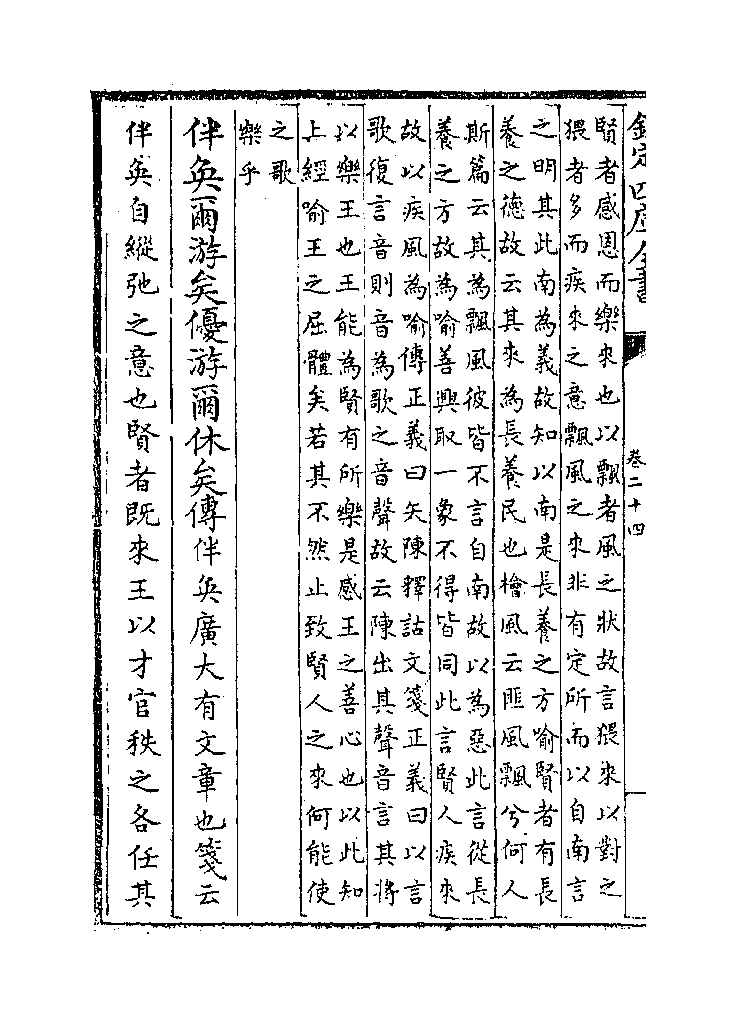 欽定四庫全書
卷二十四
賢者感恩而樂來也以飄者風之狀故言猥來以對之
猥者多而疾來之意飄風之來非有定所而以自南言
之明其此南為義故知以南是長養之方喻賢者有長
養之德故云其來為長養民也檜風云匪風飄兮何人
斯篇云其為飄風彼皆不言自南故以為惡此言從長
養之方故為喻善興取一象不得皆同此言賢人疾來
故以疾風為喻傳正義曰矢陳釋詁文箋正義曰以言
歌復言音則音為歌之音聲故云陳出其聲音言其將
以樂王也王能為賢有所樂是感王之善心也以此知
上經喻王之屈體矣若其不然止致賢人之來何能使
之歌
樂乎
伴奐爾游矣優游爾休矣傳伴奐廣大有文章也箋云
伴奐自縱弛之意也賢者既來王以才官秩之各任其